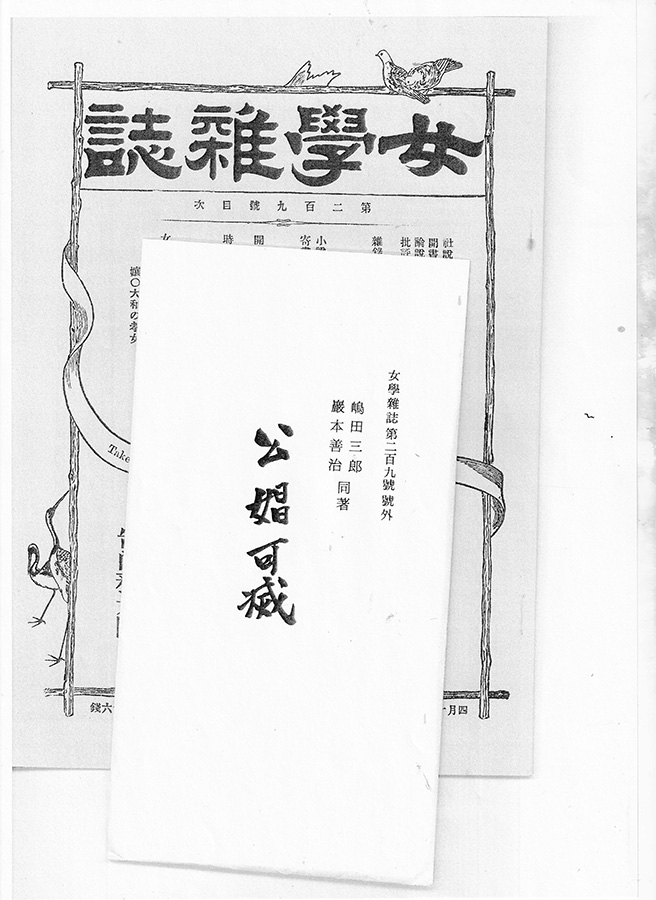 女學雜誌
第二百九號目次
社說
開書
論說
批評
雜錄
小說
寄書
開
時
女
孃〇大和の孝女
Take
四月
六錢
女學雜誌第二百九號號外
嶋田三郎
巖本善治
同著
公娼可滅